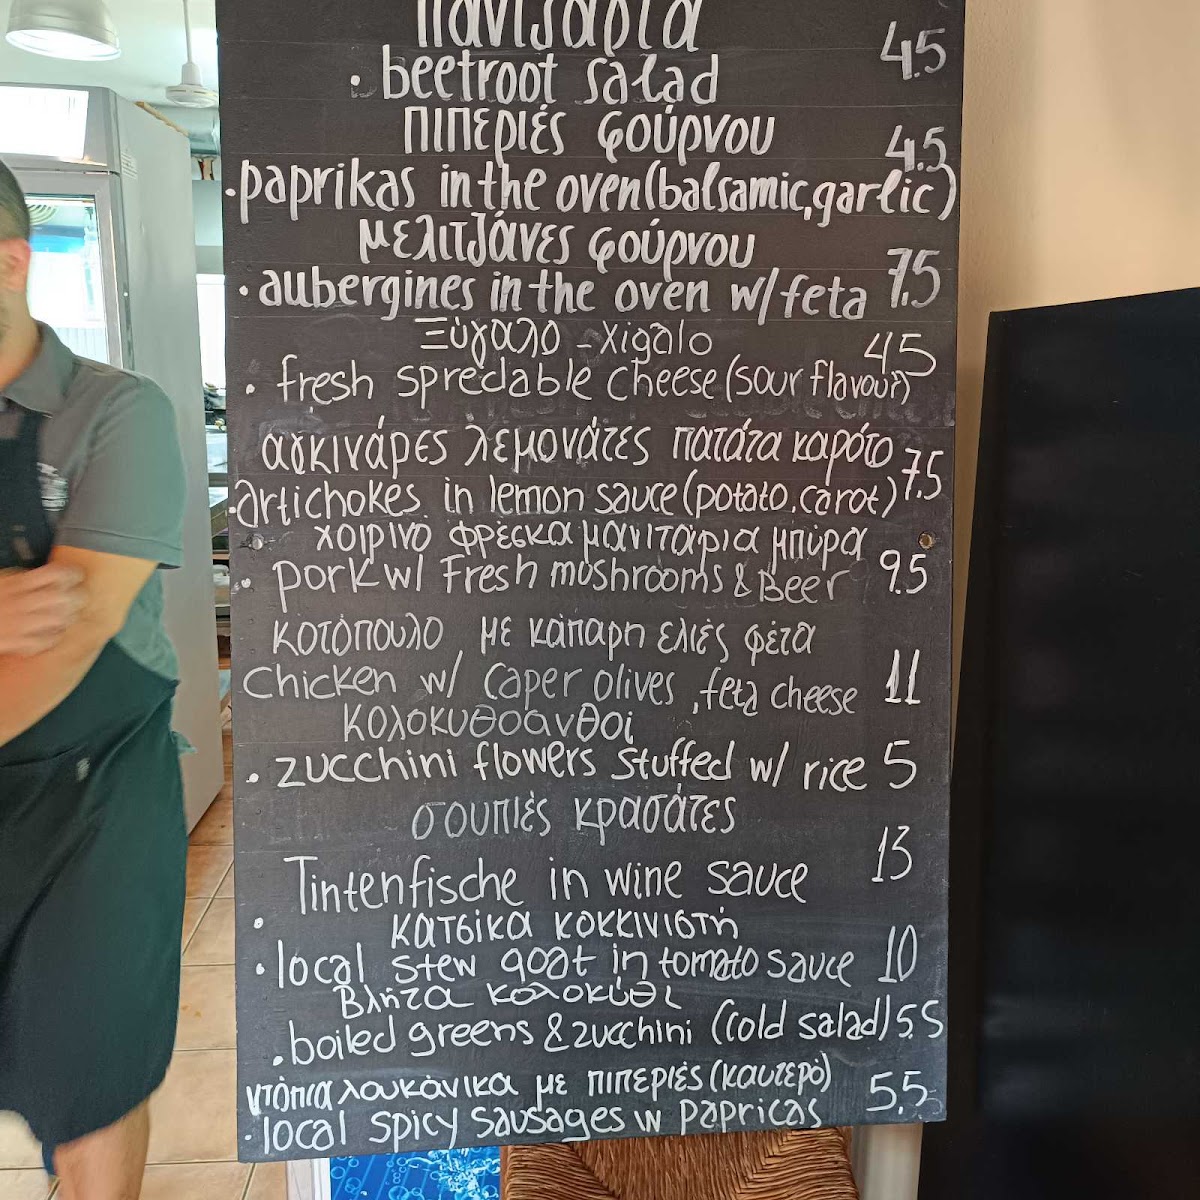 παντζάρια 4.5
• beetroot salad
πιπεριές φούρνου 4.5
• paprikas in the oven (balsamic, garlic)
μελιτζάνες φούρνου 7.5
• aubergines in the oven w/ feta
Ξύγαλο - Xigalo 4.5
• fresh spredable cheese (sour flavour)
αγκινάρες λεμονάτες πατάτα καρότο 7.5
• artichokes in lemon sauce (potato, carot)
χοιρινό φρέσκα μανιτάρια μπύρα 9.5
• pork w/ Fresh mushrooms & Beer
κοτόπουλο με κάπαρη ελιές φέτα 11
chicken w/ caper olives, feta cheese
κολοκυθοανθοί
• zucchini flowers stuffed w/ rice 5
σουπιές κρασάτες 13
Tintenfische in wine sauce
• κατσίκα κοκκινιστή 10
• local stew goat in tomato sauce
Βλήτα κολοκύθι
• boiled greens & zucchini (cold salad) 5.5
ντόπια λουκάνικα με πιπεριές (καυτερό) 5.5
• local spicy sausages w papricas